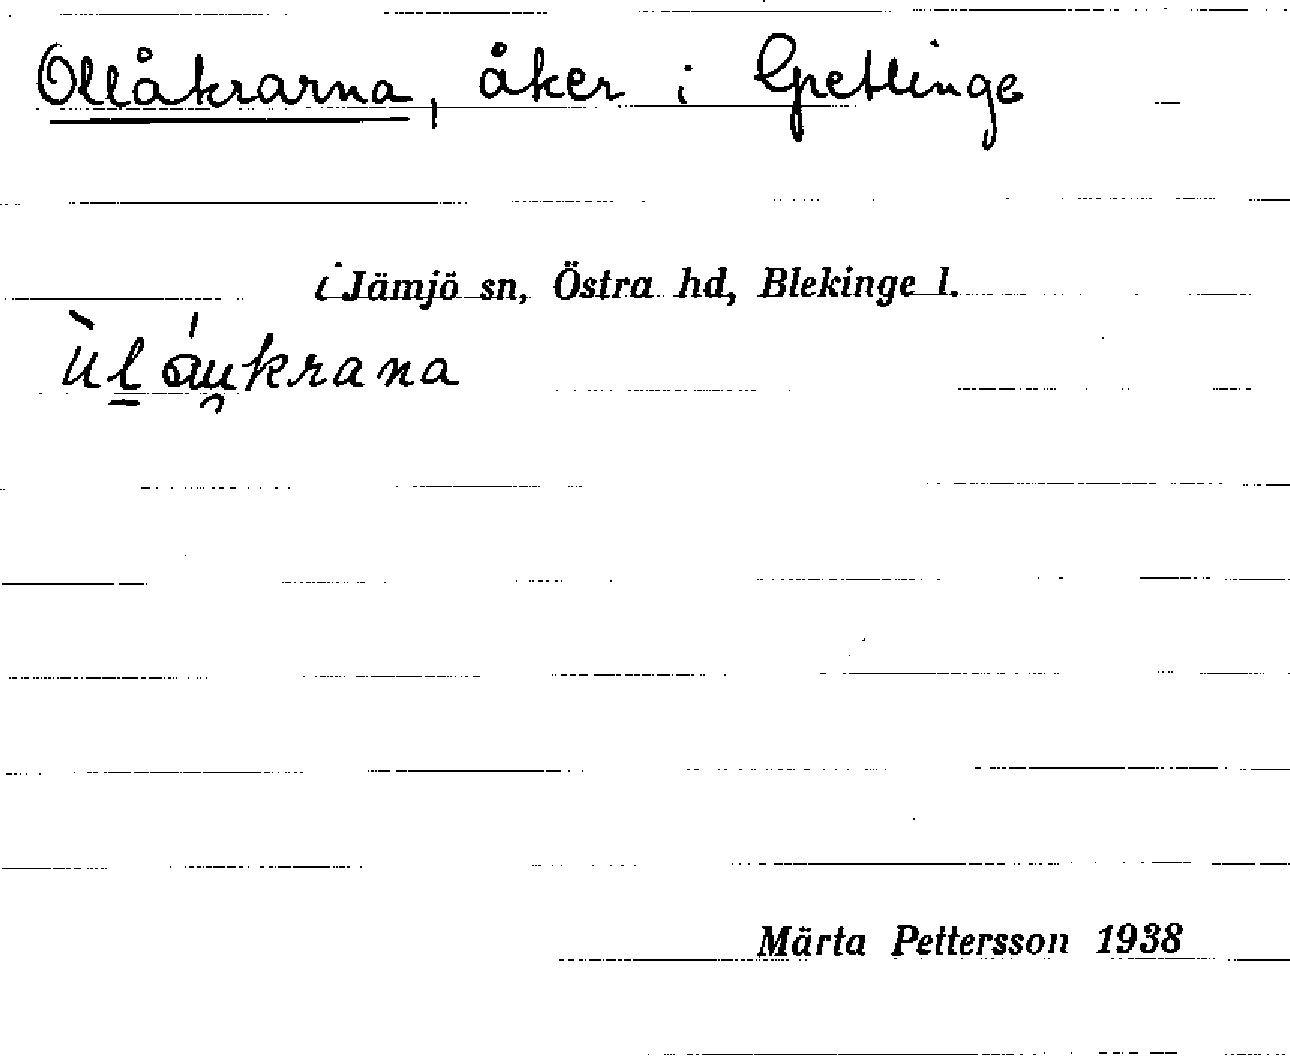 Ollåkrarna, åker i Gretlinge
i Jämjö sn, Östra hd, Blekinge l.
Märta Pettersson 1938